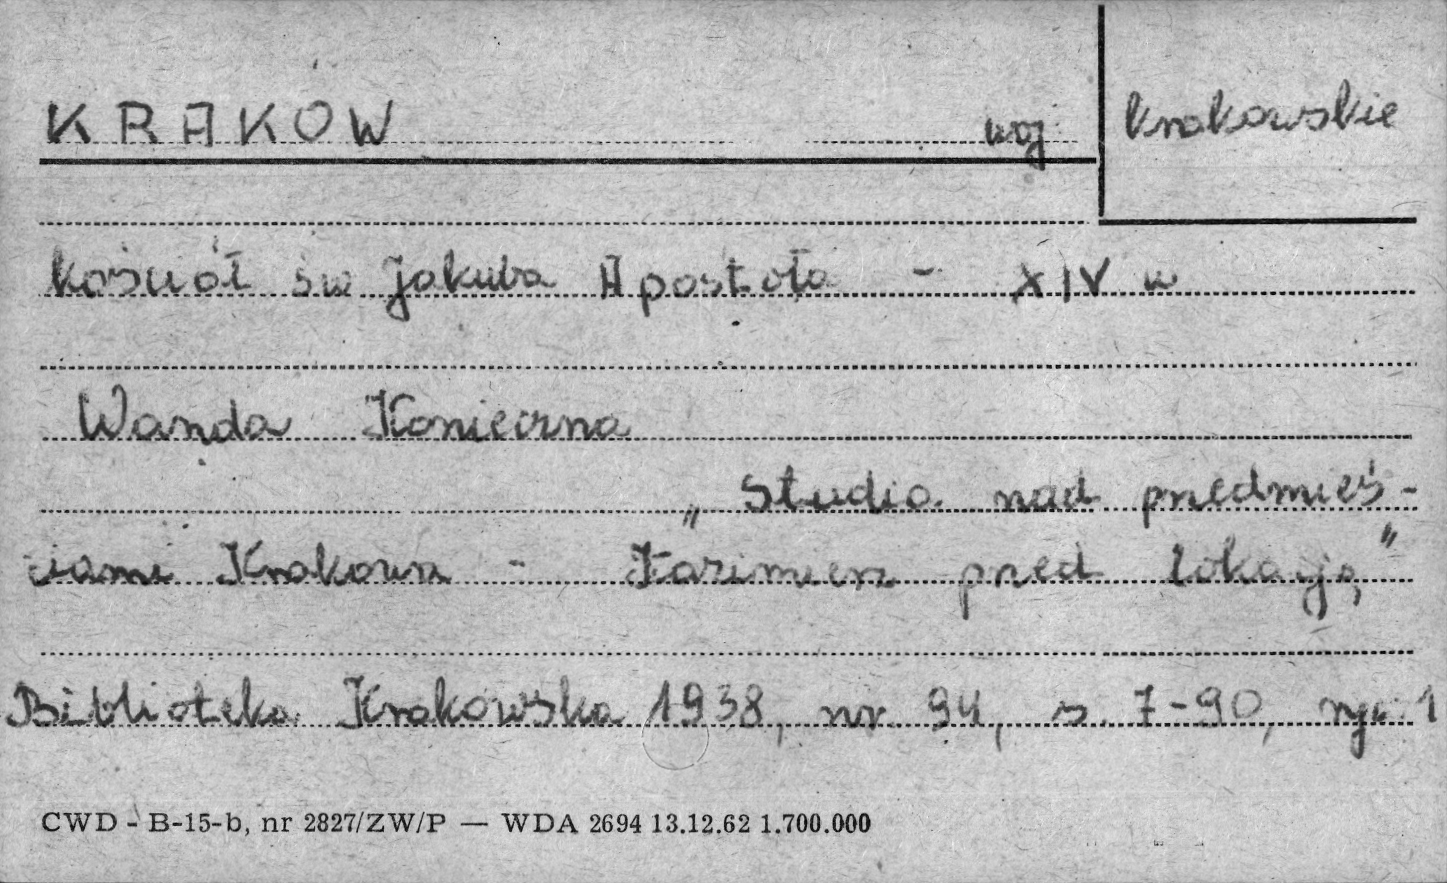 KRAKOW woj krakowskie
kościół św Jakuba Apostoła - XIV w
Wanda Konieczna
„Studia nad przedmieś-
ciami Krakowa - Kazimierz przed lokacją"
Biblioteka Krakowska 1938, nr 94, s. 7-90, ryc 1
CWD - B-15-b, nr 2827/ZW/P — WDA 2694 13.12.62 1.700.000